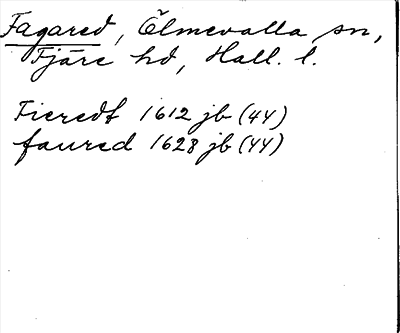 Fagared, Ölmevalla sn,
Fjäre hd, Hall. l.
Fieredt 1612 jb (44)
faured 1628 jb (44)